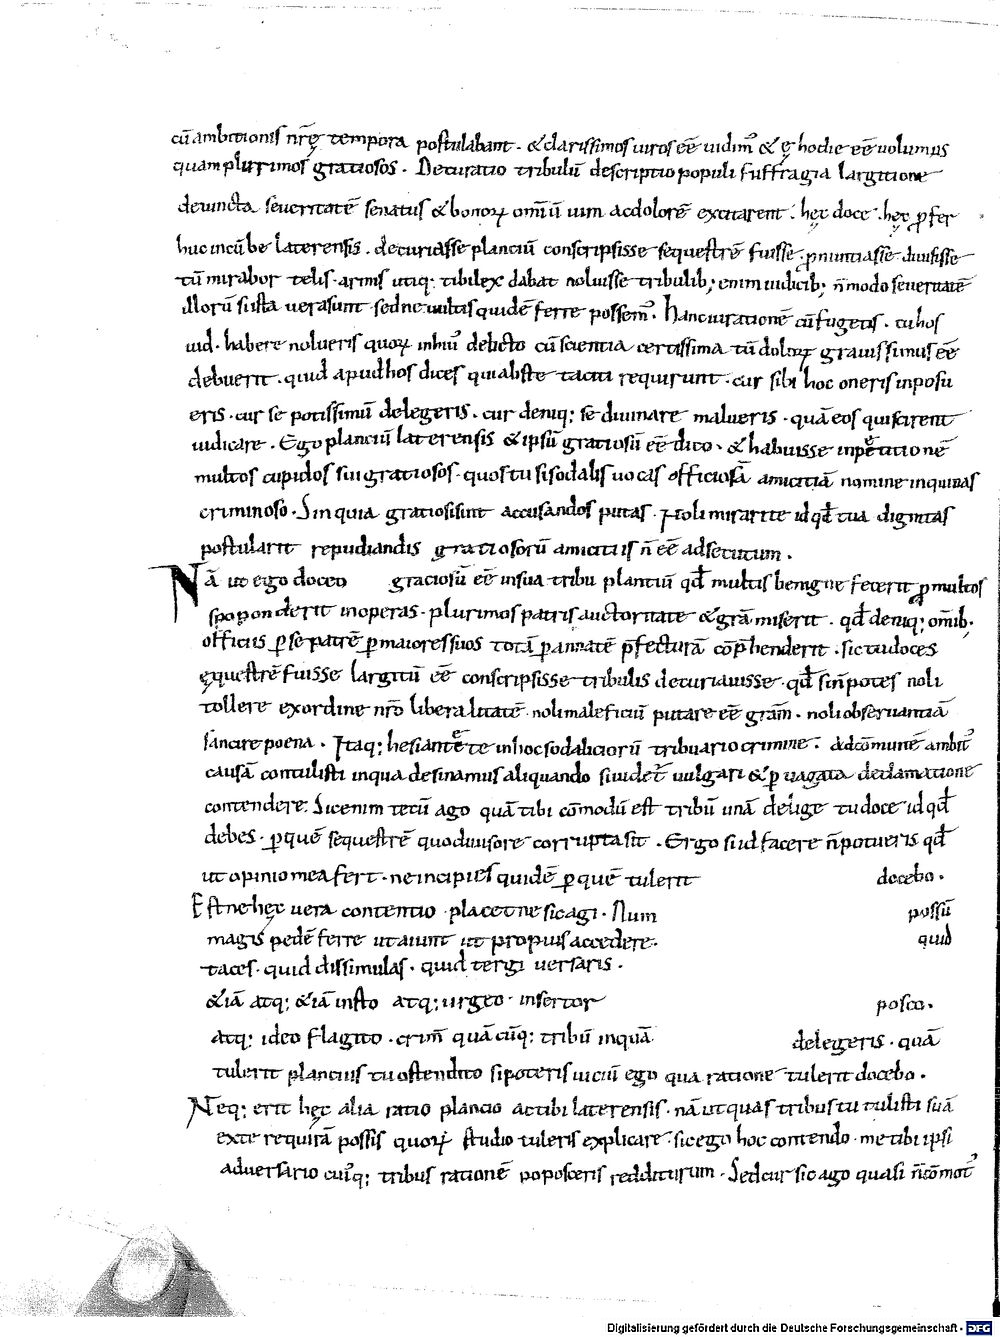 cũ ambitionis nr̃ę tempora postulabant · & clarissimos uiros eẽ uidim᷒ & ę hodie eẽ uolumus
quam plurimos gratiosos · Decuratio tribulũ descriptio populi suffragia largitione
deuincta seueritatẽ senatus & bonoꝝ om̃iũ uim ac dolorẽ excitarent · hęc doce · hęc ꝓfer
huc incũbe laterensis · decuriasse planciũ conscripsisse sequestrẽ fuisse · ꝓnuntiasse diuisisse
tũ mirabor te lis · armis utiq; tibi lex dabat noluisse tribulib; enim iudicib; ñ modo seueritatẽ
illorũ si ista uera sunt sed ne uultus quidẽ ferre possem᷒ · hanc tu rationẽ cũ fugeris · cu hos
iud · habere nolueris quoꝝ in huiu᷒ delicto cũ scientia certissima tũ doloꝝ grauissimus eẽ
debuerit · quid apud hos dices qui abste taciti requirunt · cur sibi hoc oneris inposu
eris · cur se potissimũ delegeris · cur deniq; se diuinare malueris · quã eos qui scirent
iudicare · Ego planciũ laterensis & ipsũ gratiosũ eẽ dico · & habuisse in petitionẽ
multos cupidos sui gratiosos · quos tu si sodalis uocas officiosã amicitiã nomine inquinas
criminoso · Sin quia gratiosi sint accusandos putas · Noli mirari te id qđ tua dignitas
postularit repudiandis gratiosorũ amicitiis ñ eẽ adsecutum ·
Nã ut ego doceo graciosũ eẽ in sua tribu planciũ qđ multis benigne fecerit ꝓ multos
spoponderit in operas · plurimos patris auctoritate & grã miserit · qđ deniq; om̃ib·
officiis ꝑ se patrẽ ꝑ maiores suos totã ꝑannatẽ p̃fecturã cõp̃henderit · sic tu doces
ęquestrẽ fuisse largitũ eẽ conscripsisse tribulis decuriauisse · qđ si ñ potes noli
tollere ex ordine nr̃o liberalitatẽ · noli maleficiũ putare eẽ grãm · noli obseruantiã
sancire poena · Itaq; hesitantẽ te in hoc sodaliciorũ tribuario crimine · ad cõmunẽ ambit᷒
causã contulisti in qua desinamus aliquando si uidet̃ uulgari & ꝑuagata declamatione
contendere · Sic enim tecũ ago quã tibi cõmodũ est tribũ unã delige tu doce id qđ
debes · ꝑ quẽ sequestrẽ quo diuisore corrupta sit · Ergo si id facere ñ potueris qđ
ut opinio mea fert · ne incipies quidẽ ꝑ quẽ tulerit docebo ·
Estne hęc uera contentio · placetne sic agi · Num possũ
magis pedẽ ferre ut aiunt ut propius accedere · quid
taces · quid dissimulas · quid tergiuersaris ·
&iã atq; &iã insto atq; urgeo · insector posco ·
atq; ideo flagito · crim̃ quã cũq; tribũ inquã delegeris · quã
tulerit plancius tu ostendito si poteris uiciũ ego qua ratione tulerit docebo ·
Neq; erit hęc alia ratio plancio ac tibi laterensis · nã ut quas tribus tu tulisti si uã
ex te requirã possis quoꝝ studio tuleris explicare · sic ego hoc contendo · me tibi ipsi
aduersario cui᷒q; tribus rationẽ poposceris redditurum · Sed cur sic ago quasi ñ cõmot᷒
Digitalisierung gefördert durch die Deutsche Forschungsgemeinschaft - DFG